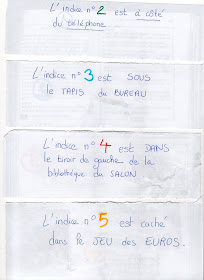 L'indice n° 2 est à côté
du téléphone
L'indice n° 3 est SOUS
le TAPIS du BUREAU
L'indice n° 4 est DANS
le tiroir de gauche de la
bibliothèque du SALON
L'indice n° 5 est caché
dans le JEU des EUROS.